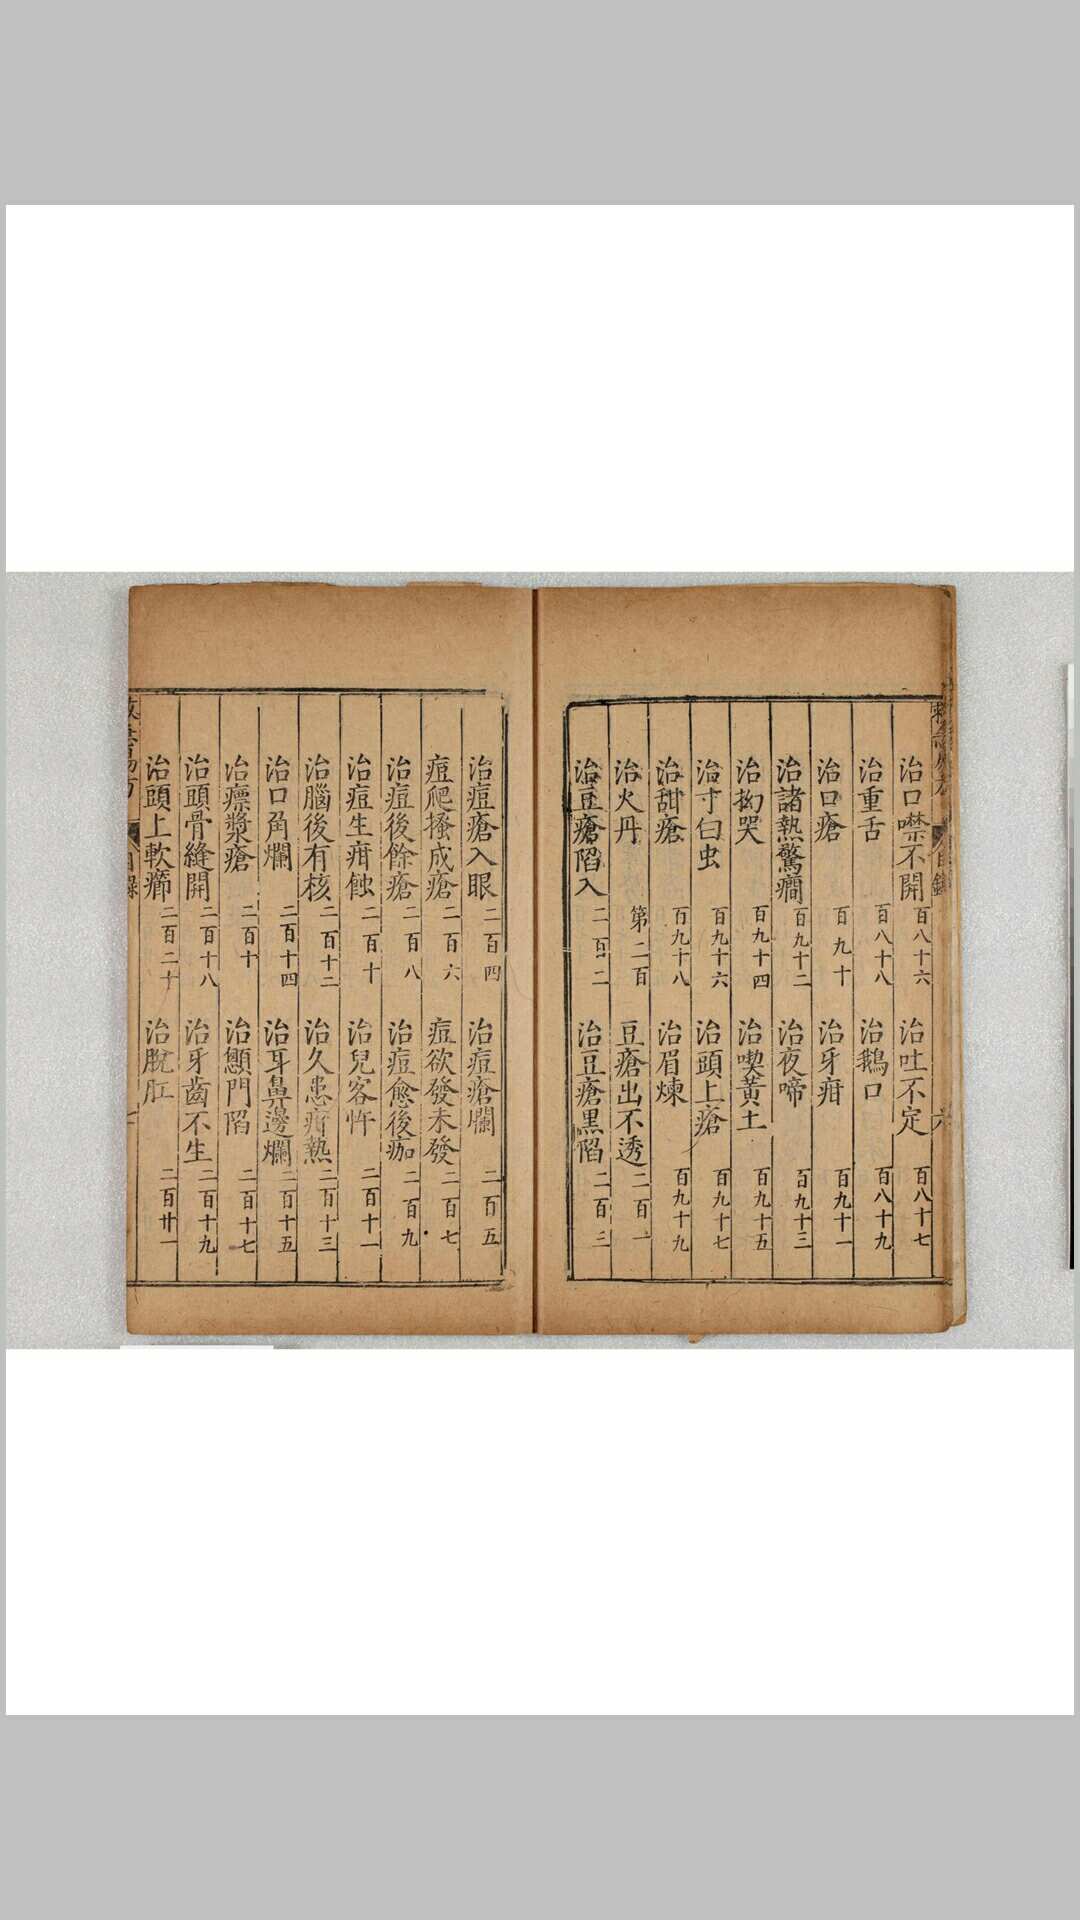 治口噤不開百八十六 治吐不定百八十七
治重舌百八十八 治鵝口百八十九
治口瘡百九十 治牙疳百九十一
治諸熱驚癎百九十二 治夜啼百九十三
治拗哭百九十四 治喫黃土百九十五
治寸白虫百九十六 治頭上瘡百九十七
治甜瘡百九十八 治眉煉百九十九
治火丹第二百 豆瘡出不透二百一
治豆瘡陷入二百二 治豆瘡黑陷二百三
治痘瘡入眼二百四 治痘瘡爛二百五
痘爬搔成瘡二百六 痘欲發未發二百七
治痘後餘瘡二百八 治痘愈後痂二百九
治痘生疳蝕二百十 治兒客忤二百十一
治腦後有核二百十二 治久患疳熱二百十三
治口角爛二百十四 治耳鼻邊爛二百十五
治瘭漿瘡二百十 治顖門陷二百十七
治頭骨縫開二百十八 治牙齒不生二百十九
治頭上軟癤二百二十 治脫肛二百廿一